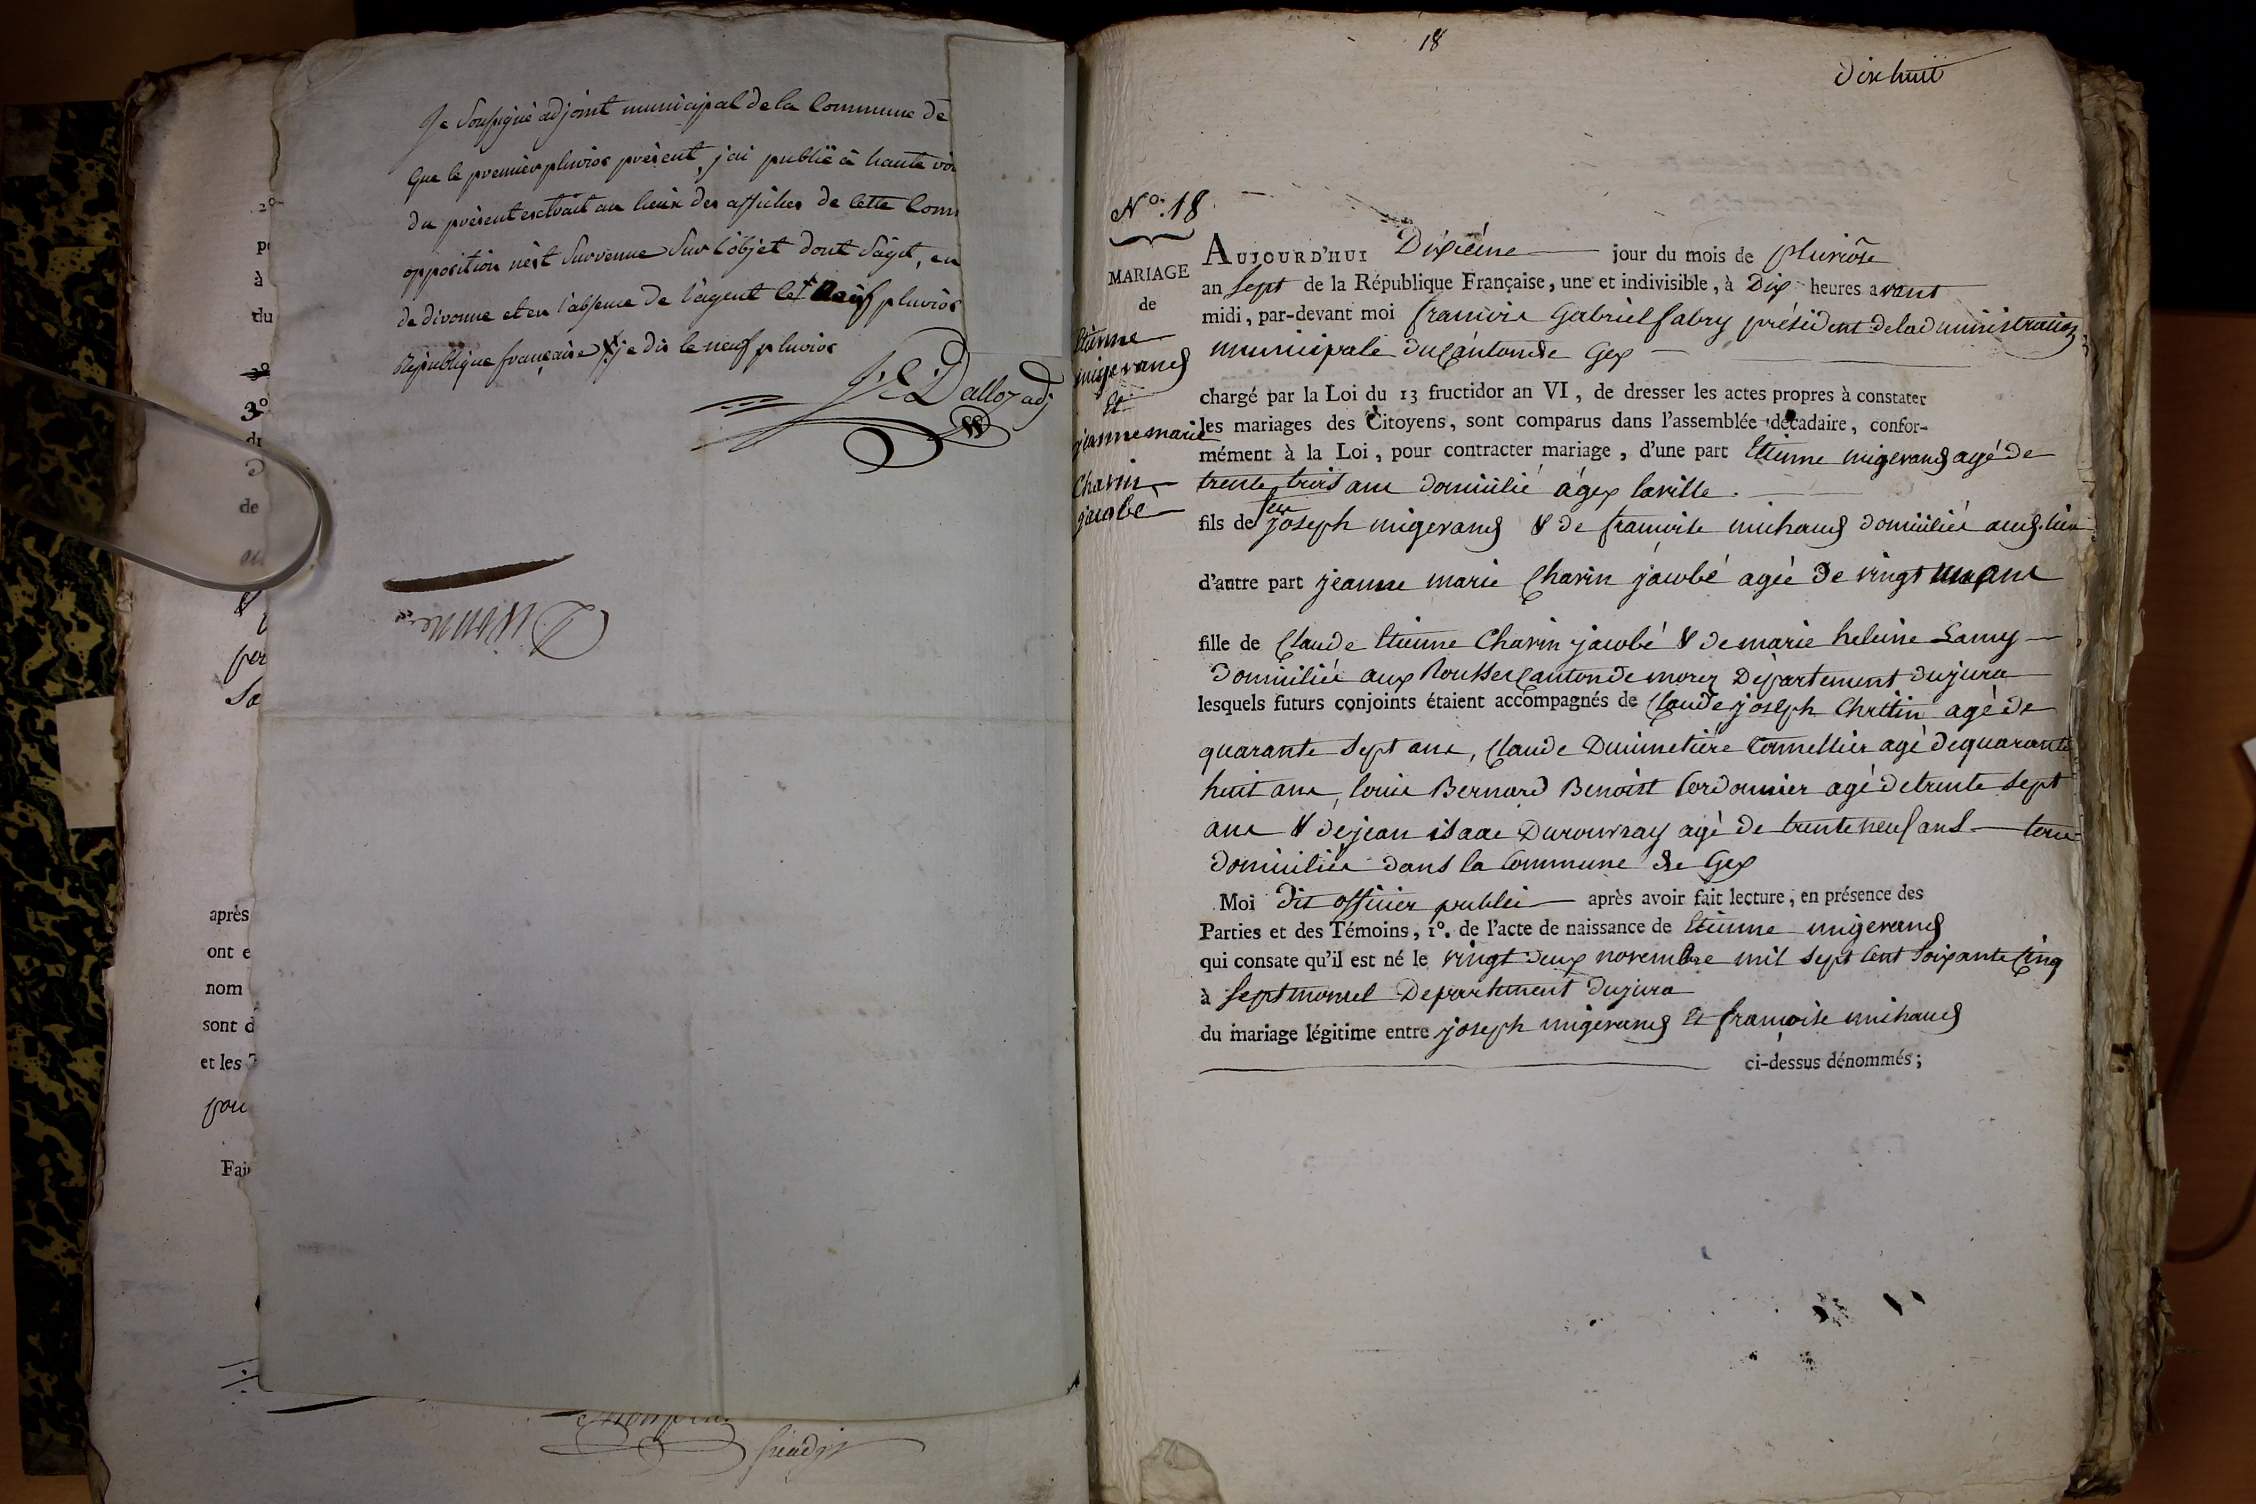 Je Soussigné adjoint municipal de la Commune de
que le premier pluvios présent, j'ai publié à haute voi
du présent extrait au lieux des affiches de cette Com
opposition n'est Survenue Sur l'objet dont S'agit, en
de divonne et en l'absence de l'agent le neuf pluvios
République française je dis le neuf pluvios
J. E. Dalloz adj
Divonne
2°
à
du
3°
de
per
Sa
après
ont e
nom
sont d
et les T
pou
Fai
18
dix huit
N°. 18
MARIAGE
de
Etienne
migerand
Et
jeanne marie
Chavin
jacobé
AUJOURD'HUI Dixiéme jour du mois de pluviôse
an Sept de la République Française, une et indivisible, à Dix heures avant
midi, par-devant moi francois Gabriel fabry président de la dministration
municipale du Canton de Gex
chargé par la Loi du 13 fructidor an VI, de dresser les actes propres à constater
les mariages des Citoyens, sont comparus dans l'assemblée décadaire, confor-
mément à la Loi, pour contracter mariage, d'une part Etienne migerand agé de
trente trois ans domicilié à gex la ville.
fils de feu joseph migerand & de francoise michaud domiciliés aud. lieu
d'autre part jeanne marie Chavin jacobé agée de vingt un ans
fille de Claude Etienne Chavin jacobé & de marie heleine Lamy
domiciliés aux Rousses Canton de morez Département du jura
lesquels futurs conjoints étaient accompagnés de Claude joseph Chrittin agé de
quarante Sept ans, Claude Duimetière tonnellier agé de quarante
huit ans, louis Bernard Benoist Cordonnier agé de trente Sept
ans & de jean isaac Durouvray agé de trente neuf ans tous
domiciliés dans la Commune de Gex
Moi dit officier public après avoir fait lecture, en présence des
Parties et des Témoins, 1°. de l'acte de naissance de Etienne migerand
qui consate qu'il est né le vingt deux novembre mil Sept Cent Soixante Cinq
à Septmoncel Département du jura
du mariage légitime entre joseph migerand Et francoise michaud
ci-dessus dénommés;